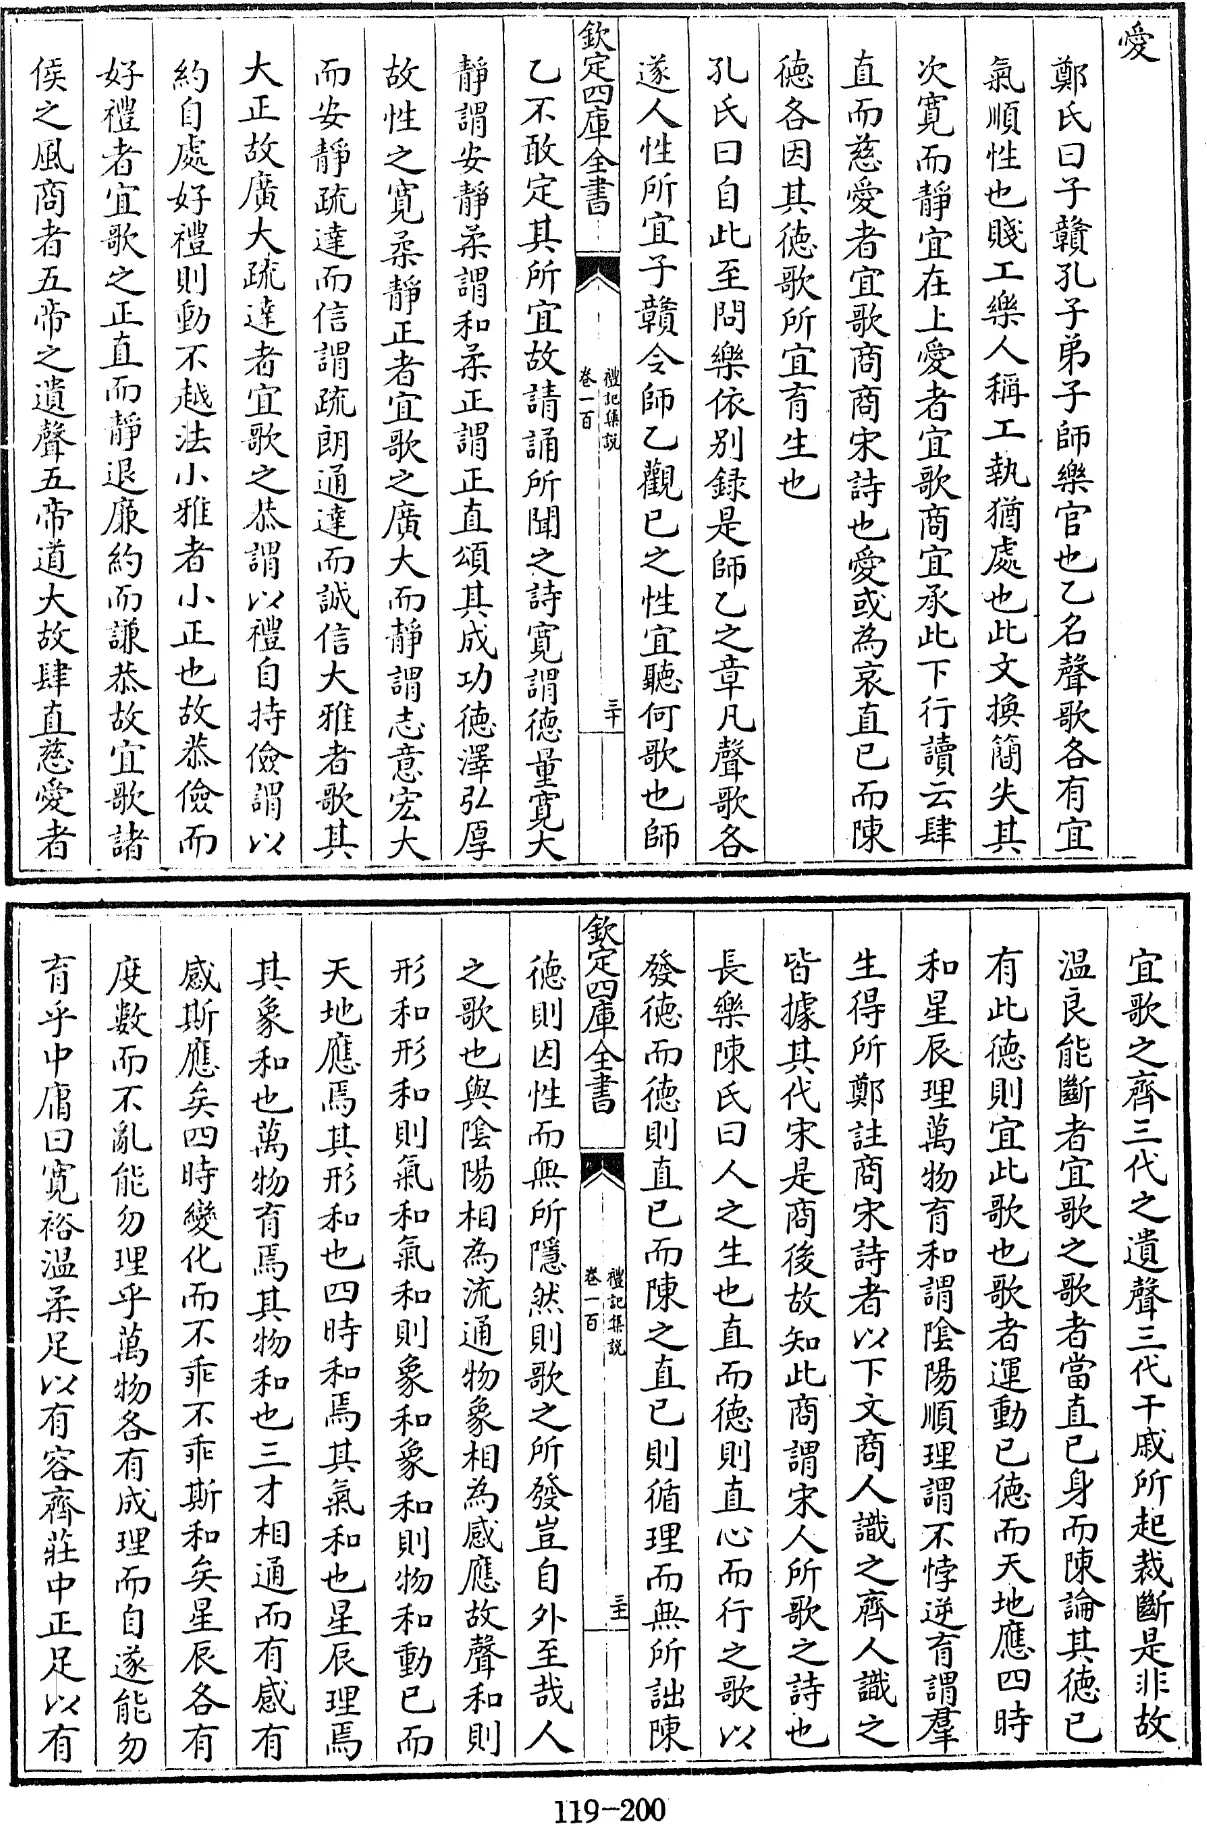 愛
鄭氏曰子贛孔子弟子師樂官也乙名聲歌各有宜
氣順性也賤工樂人稱工執猶處也此文換簡失其
次寛而靜宜在上愛者宜歌商宜承此下行讀云肆
直而慈愛者宜歌商商宋詩也愛或為哀直已而陳
徳各因其徳歌所宜育生也
孔氏曰自此至問樂依别録是師乙之章凡聲歌各
遂人性所宜子贛令師乙觀已之性宜聽何歌也師
欽定四庫全書
禮記集說
卷一百
三十
乙不敢定其所宜故請誦所聞之詩寛謂徳量寛大
靜謂安靜柔謂和柔正謂正直頌其成功徳澤弘厚
故性之寛柔靜正者宜歌之廣大而靜謂志意宏大
而安靜疏達而信謂疏朗通達而誠信大雅者歌其
大正故廣大疏達者宜歌之恭謂以禮自持儉謂以
約自處好禮則動不越法小雅者小正也故恭儉而
好禮者宜歌之正直而靜退廉約而謙恭故宜歌諸
侯之風商者五帝之遺聲五帝道大故肆直慈愛者
宜歌之齊三代之遺聲三代干戚所起裁斷是非故
温良能斷者宜歌之歌者當直已身而陳論其徳已
有此徳則宜此歌也歌者運動已徳而天地應四時
和星辰理萬物育和謂隂陽順理謂不悖逆育謂羣
生得所鄭註商宋詩者以下文商人識之齊人識之
皆據其代宋是商後故知此商謂宋人所歌之詩也
長樂陳氏曰人之生也直而徳則直心而行之歌以
發徳而徳則直已而陳之直已則循理而無所詘陳
欽定四庫全書
禮記集說
卷一百
三十一
徳則因性而無所隱然則歌之所發豈自外至哉人
之歌也與隂陽相為流通物象相為感應故聲和則
形和形和則氣和氣和則象和象和則物和動已而
天地應焉其形和也四時和焉其氣和也星辰理焉
其象和也萬物育焉其物和也三才相通而有感有
感斯應矣四時變化而不乖不乖斯和矣星辰各有
度數而不亂能勿理乎萬物各有成理而自遂能勿
育乎中庸曰寛裕温柔足以有容齊莊中正足以有
119-200